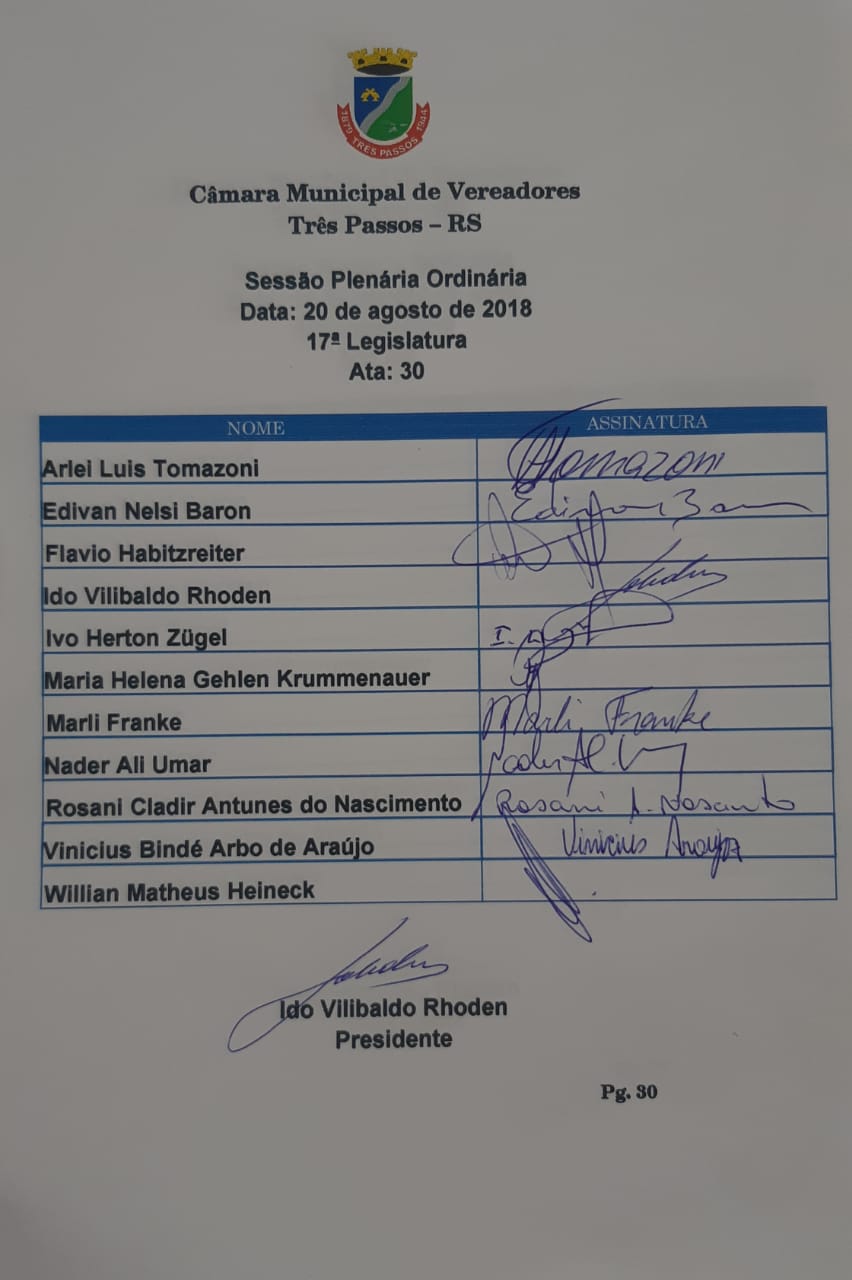 1879 TRÊS PASSOS 1944
Câmara Municipal de Vereadores
Três Passos – RS
Sessão Plenária Ordinária
Data: 20 de agosto de 2018
17ª Legislatura
Ata: 30
NOME ASSINATURA
Arlei Luis Tomazoni Tomazoni
Edivan Nelsi Baron
Flavio Habitzreiter
Ido Vilibaldo Rhoden
Ivo Herton Zügel
Maria Helena Gehlen Krummenauer
Marli Franke Marli Franke
Nader Ali Umar
Rosani Cladir Antunes do Nascimento Rosani A.
Vinicius Bindé Arbo de Araújo Vinicius Araujo
Willian Matheus Heineck
Ido Vilibaldo Rhoden
Presidente
Pg. 30